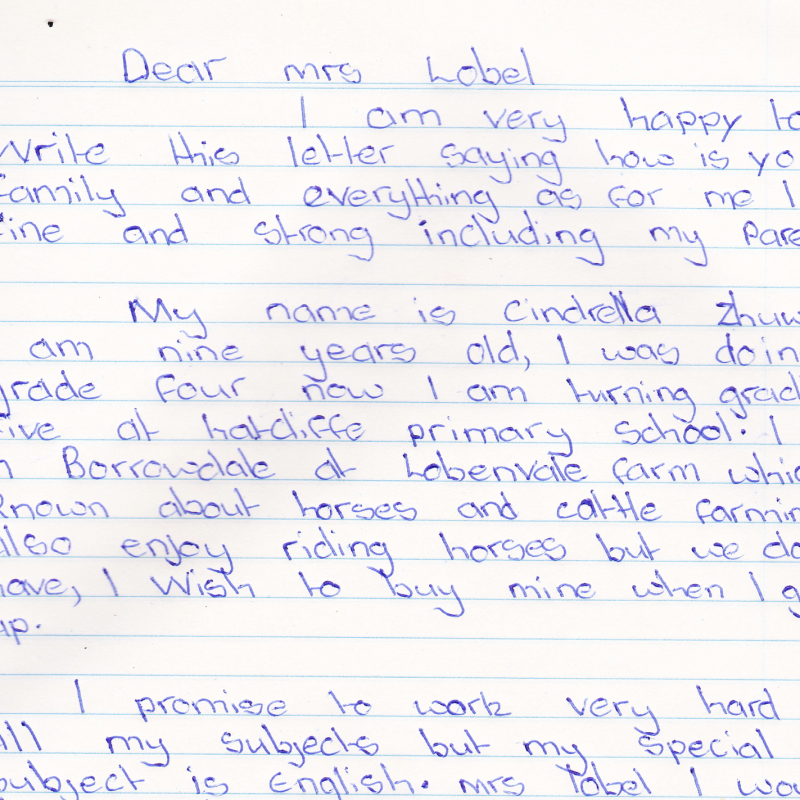 Dear mrs Lobel
I am very happy to
Write this letter saying how is yo
family and everything as for me I
fine and strong including my Pare
My name is Cindrella Zhuw
am nine years old, I was doin
grade four now I am turning grad
five at hatcliffe primary school. I
n Borrowdale at Lobenvale farm whic
known about horses and cattle farmin
also enjoy riding horses but we do
have, I Wish to buy mine when I g
up.
I promise to work very hard
all my subjects but my special
subject is English. mrs Lobel I wou